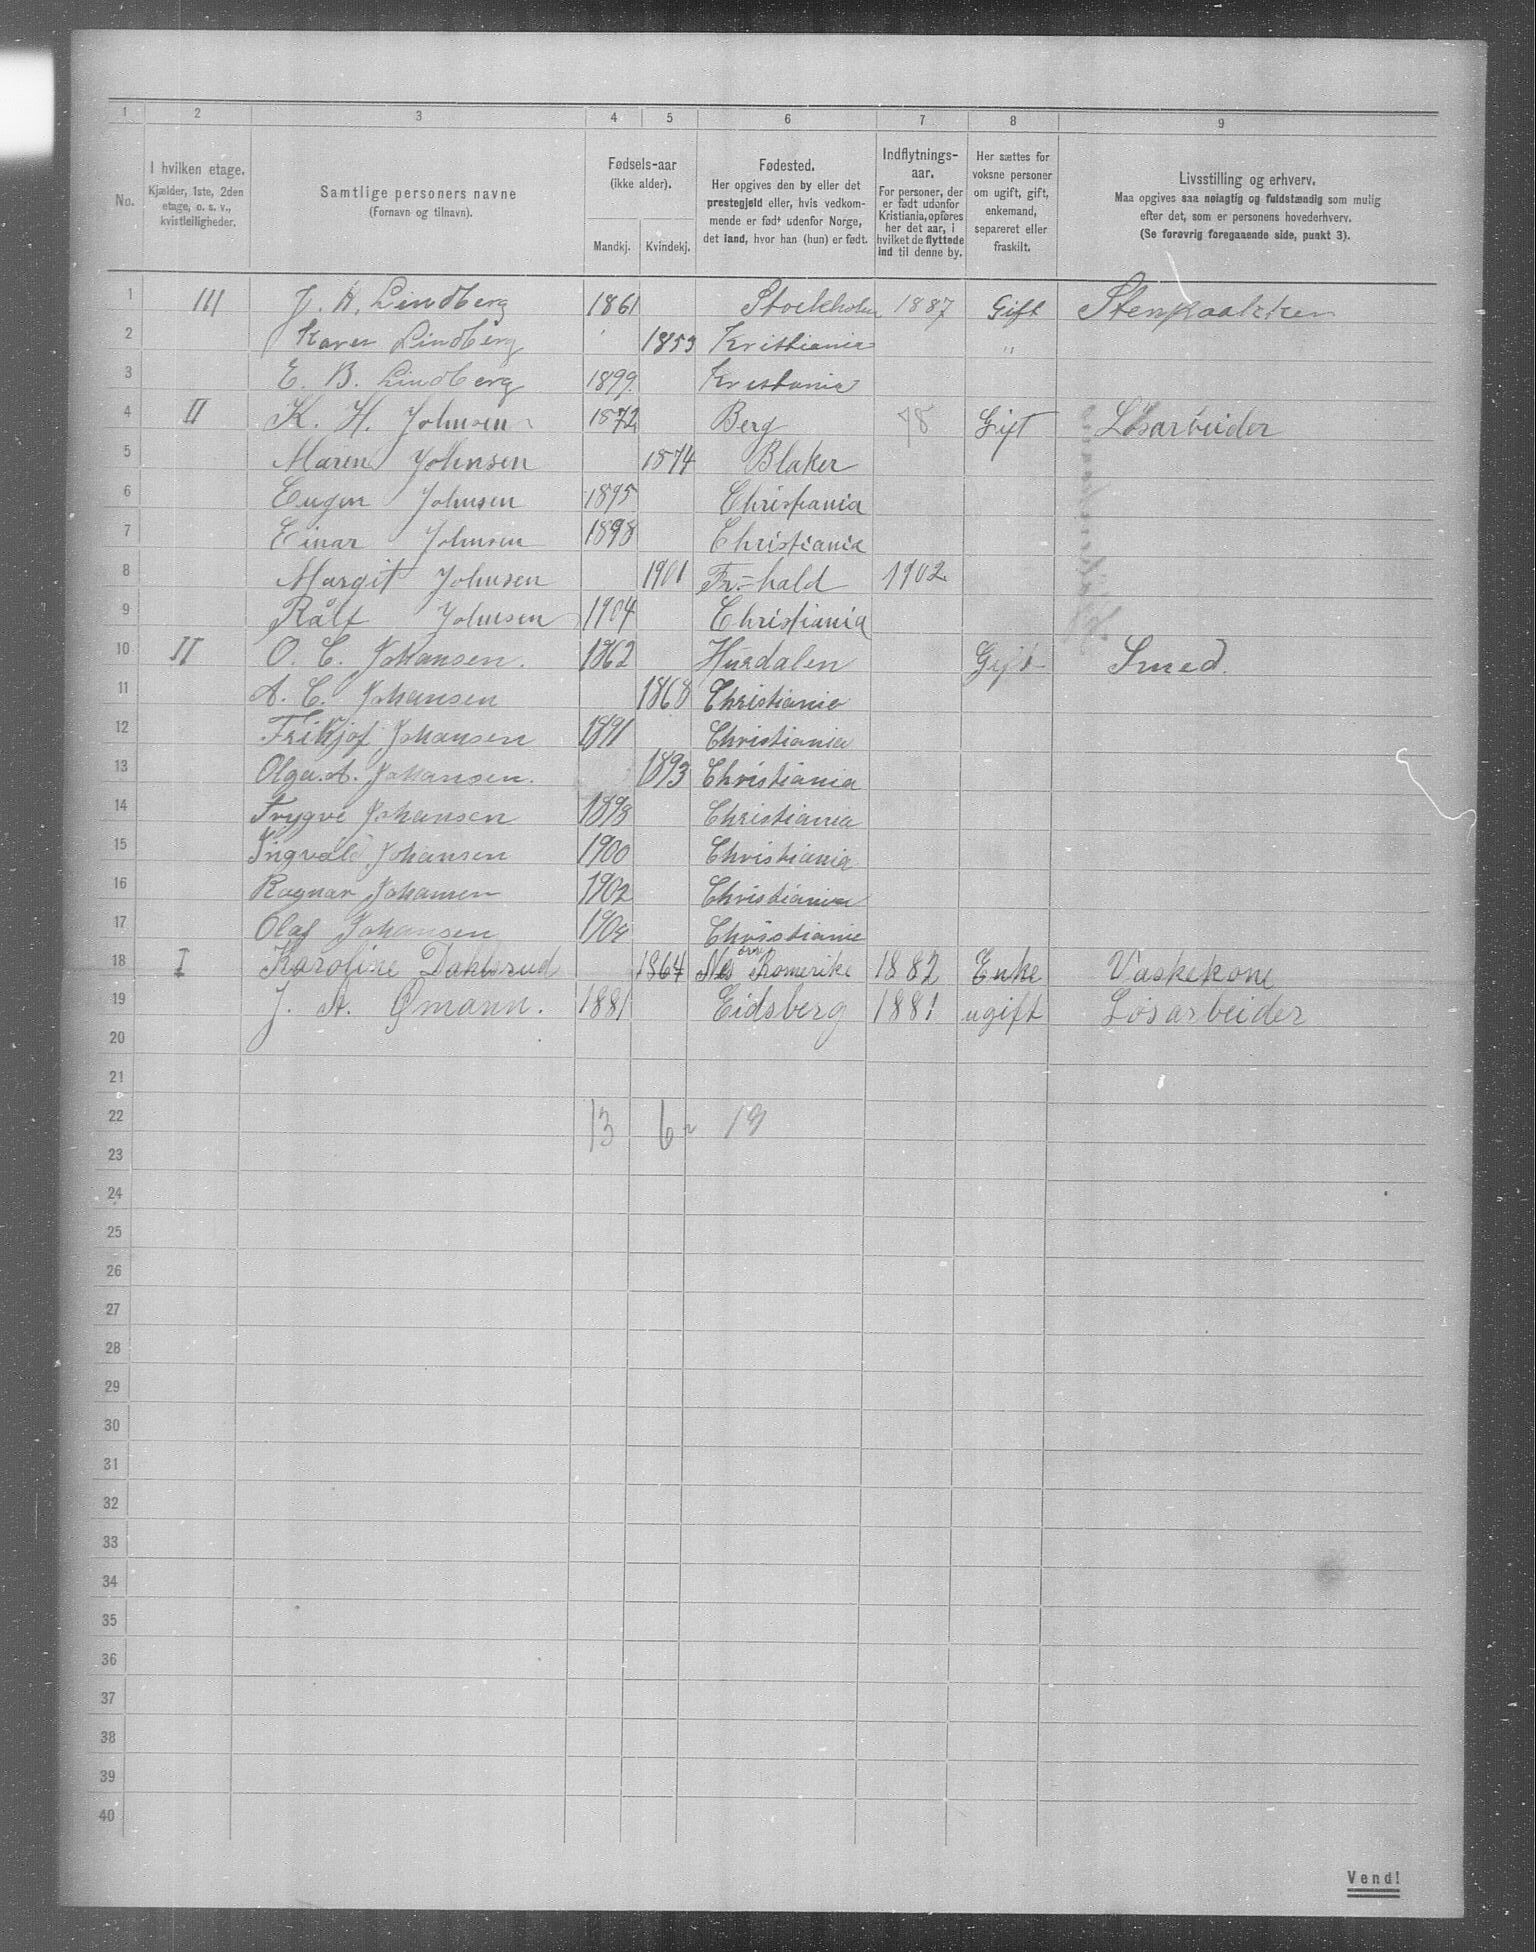 1 2 3 4 5 6 7 8 9
No.
I hvilken etage.
Kjælder, 1ste, 2den
etage, o. s. v.,
kvistleiligheder.
Samtlige personers navne
(Fornavn og tilnavn).
Fødsels-aar
(ikke alder).
Mandkj. Kvindekj.
Fødested.
Her opgives den by eller det
prestegjeld eller, hvis vedkom-
mende er født udenfor Norge,
det land, hvor han (hun) er født.
Indflytnings-
aar.
For personer, der
er født udenfor
Kristiania, opføres
her det aar, i
hvilket de flyttede
ind til denne by.
Her sættes for
voksne personer
om ugift, gift,
enkemand,
separeret eller
fraskilt.
Livsstilling og erhverv.
Maa opgives saa nøiagtig og fuldstændig som mulig
efter det, som er personens hovederhverv.
(Se forøvrig foregaaende side, punkt 3).
1 III J. H. Lindberg 1861 Stockholm 1887 Gift
2 Karen Lindberg 1853 Kristiania "
3 E. B. Lindberg 1899 Kristania
4 II K. H. Johnsen 1872 Berg 98 Gift Løsarbeider
5 Maren Johnsen 1874 Blaker
6 Eugen Johnsen 1895 Christiania
7 Einar Johnsen 1898 Christiania
8 Margit Johnsen 1901 Fr=hald 1902
9 Rålf Johnsen 1904 Christiania
10 II O. C. Johansen. 1862 Hurdalen Gift Smed.
11 A. C. Johansen 1868 Christiania
12 Frithjof Johansen 1891 Christiania
13 Olga A. Johansen. 1893 Christiania
14 Trygve Johansen 1898 Christiania
15 Ingvald Johansen 1900 Christiania
16 Ragnar Johansen 1902 Christiania
17 Olaf Johansen 1904 Christiania
18 I Karoline Dahlsrud 1864 Nes Romerike 1882 Enke Vaskekone
19 J. A. Ømann. 1881 Eidsberg 1881 ugift Løsarbeider
20
21
22 13 6 19
23
24
25
26
27
28
29
30
31
32
33
34
35
36
37
38
39
40
Vend!